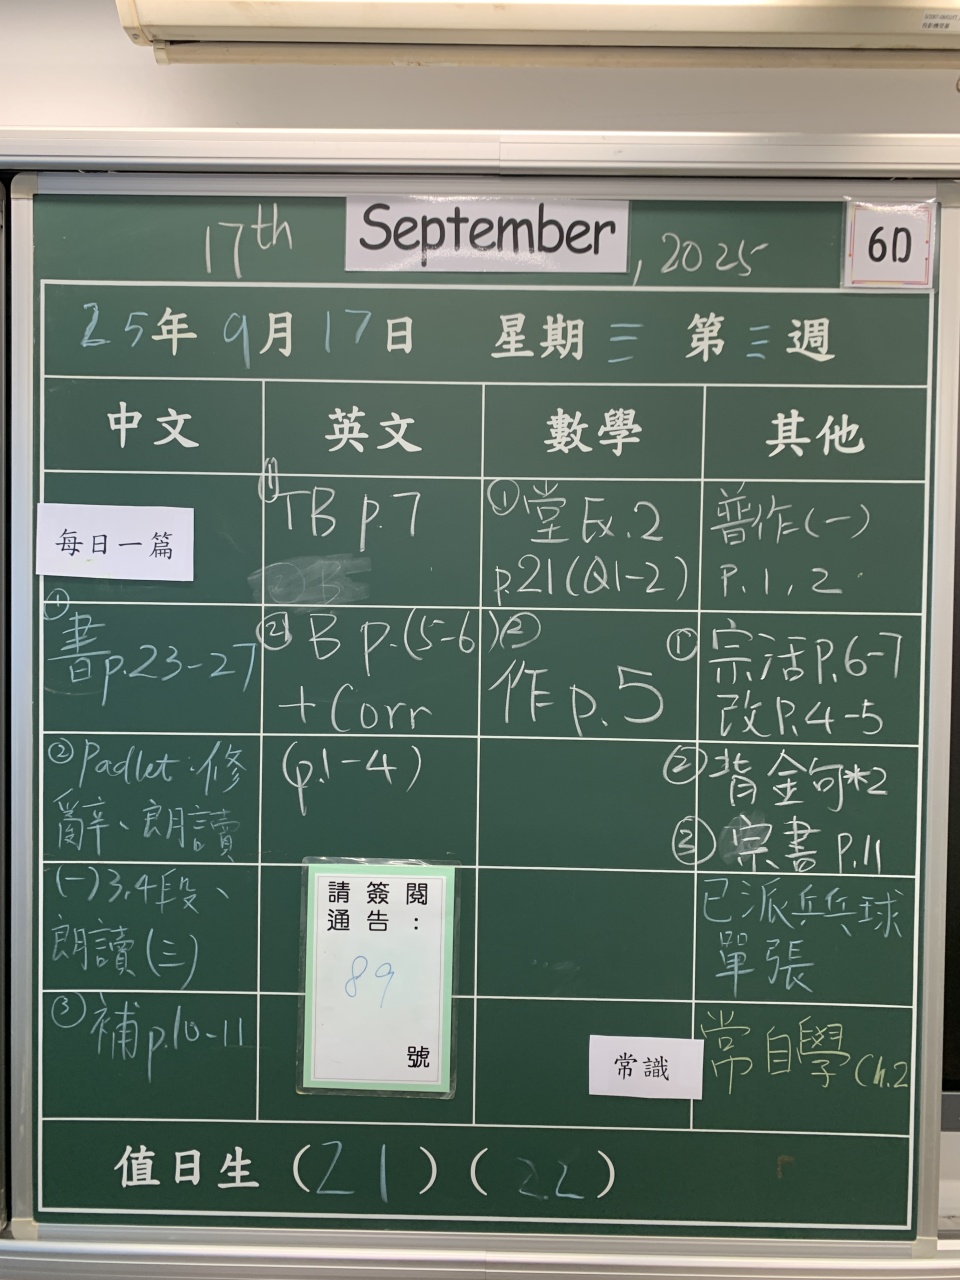 17th September, 2025
6D
25年9月17日 星期三 第三週
中文 英文 數學 其他
每日一篇
① 書p.23-27
② Padlet:修
辭、朗讀
(一)3,4段、
朗讀(三)
③ 補p.10-11
① TB p.7
② B p.(5-6)
+Corr
(p.1-4)
請簽閱
通告:
89
號
① 堂Ex.2
p.21(Q1-2)
②
作p.5
普作(一)
P.1,2
① 宗活P.6-7
改P.4-5
② 背金句*2
③ 宗書P.11
已派乒乓球
單張
常識
常自學Ch.2
值日生(21)(22)